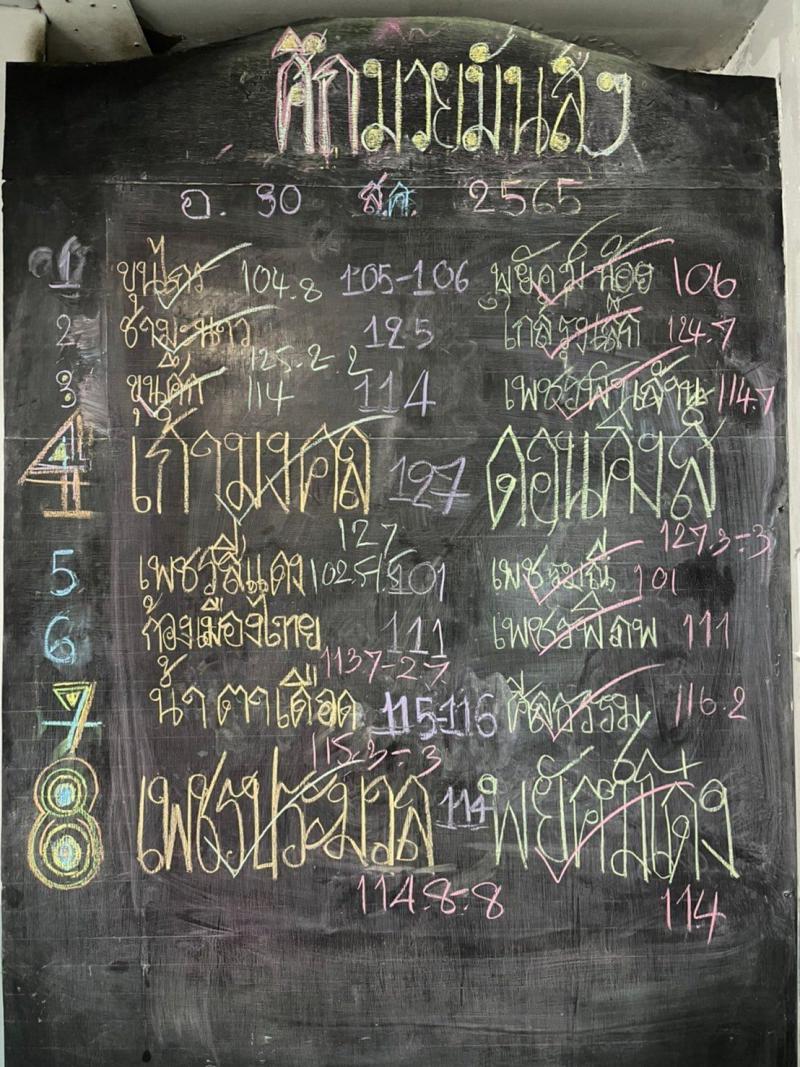 ศึกมวยมันส์ๆ
อ. 30 ส.ค. 2565
1 ขุนไกร 104.8 105-106 พยัคฆ์น้อย 106
2 ช้ามะนาว 125 124.7
125-2-2
3 ขุนศึก 114 114 114.7
4 เก้ามงคล 127
127 127.3-3
5 เพชรสีแดง 102.5 101 เพชรมณี 101
6 ก้องเมืองไทย 111 เพชรพิภพ 111
113.7-2.7
7 น้ำตาเดือด 115-116 ศีลธรรม 116.2
115.3-3
8 เพชรประมวล 114 พยัคฆ์แดง
114.8-8 114